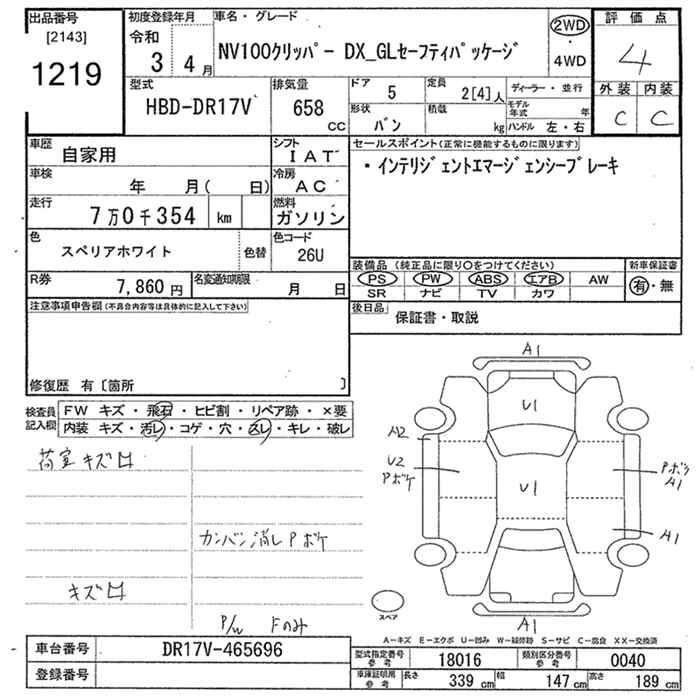 出品番号 初度登録年月 車名・グレード 評価点
[2143] 令和 2WD
1219 3 4月 NV100クリッパー DX_GLセーフティパッケージ ・ 4
4WD
型式 排気量 ドア 5 定員 2[4]人 ディーラー・並行 外装 内装
HBD-DR17V 658 CC 形状 バン 積載 kg モデル年式 年 C C
ハンドル 左・右
車歴 自家用 シフト IAT セールスポイント(正常に機能するものに限ります)
車検 年 月( 日) 冷房 AC ・インテリジェントエマージェンシーブレーキ
走行 7万0千354 km 燃料 ガソリン
色 スペリアホワイト 色替 色コード 26U
装備品 (純正品に限り○をつけてください) 新車保証書
R券 7,860円 名変通知期限 月 日 PS PW ABS エアB AW 有・無
SR ナビ TV カワ
注意事項申告欄(不具合内容等は具体的に記入して下さい) 後日品 保証書・取説
修復歴 有〔箇所 〕
検査員記入欄 FW キズ・飛石・ヒビ割・リペア跡・×要
内装 キズ・汚レ・コゲ・穴・スレ・キレ・破レ
A1
U1
A2
荷室キズ
U2 Pボケ
U1
Pボケ A1
カンバン消しPボケ
A1
キズ
スペア
P/W Fのみ
A1
A－キズ E－エクボ U－凹み W－補修跡 S－サビ C－腐食 XX－交換済
車台番号 DR17V-465696 型式指定番号 参考 18016 類別区分番号 参考 0040
登録番号 車庫証明用 参考 長さ 339cm 幅 147cm 高さ 189cm